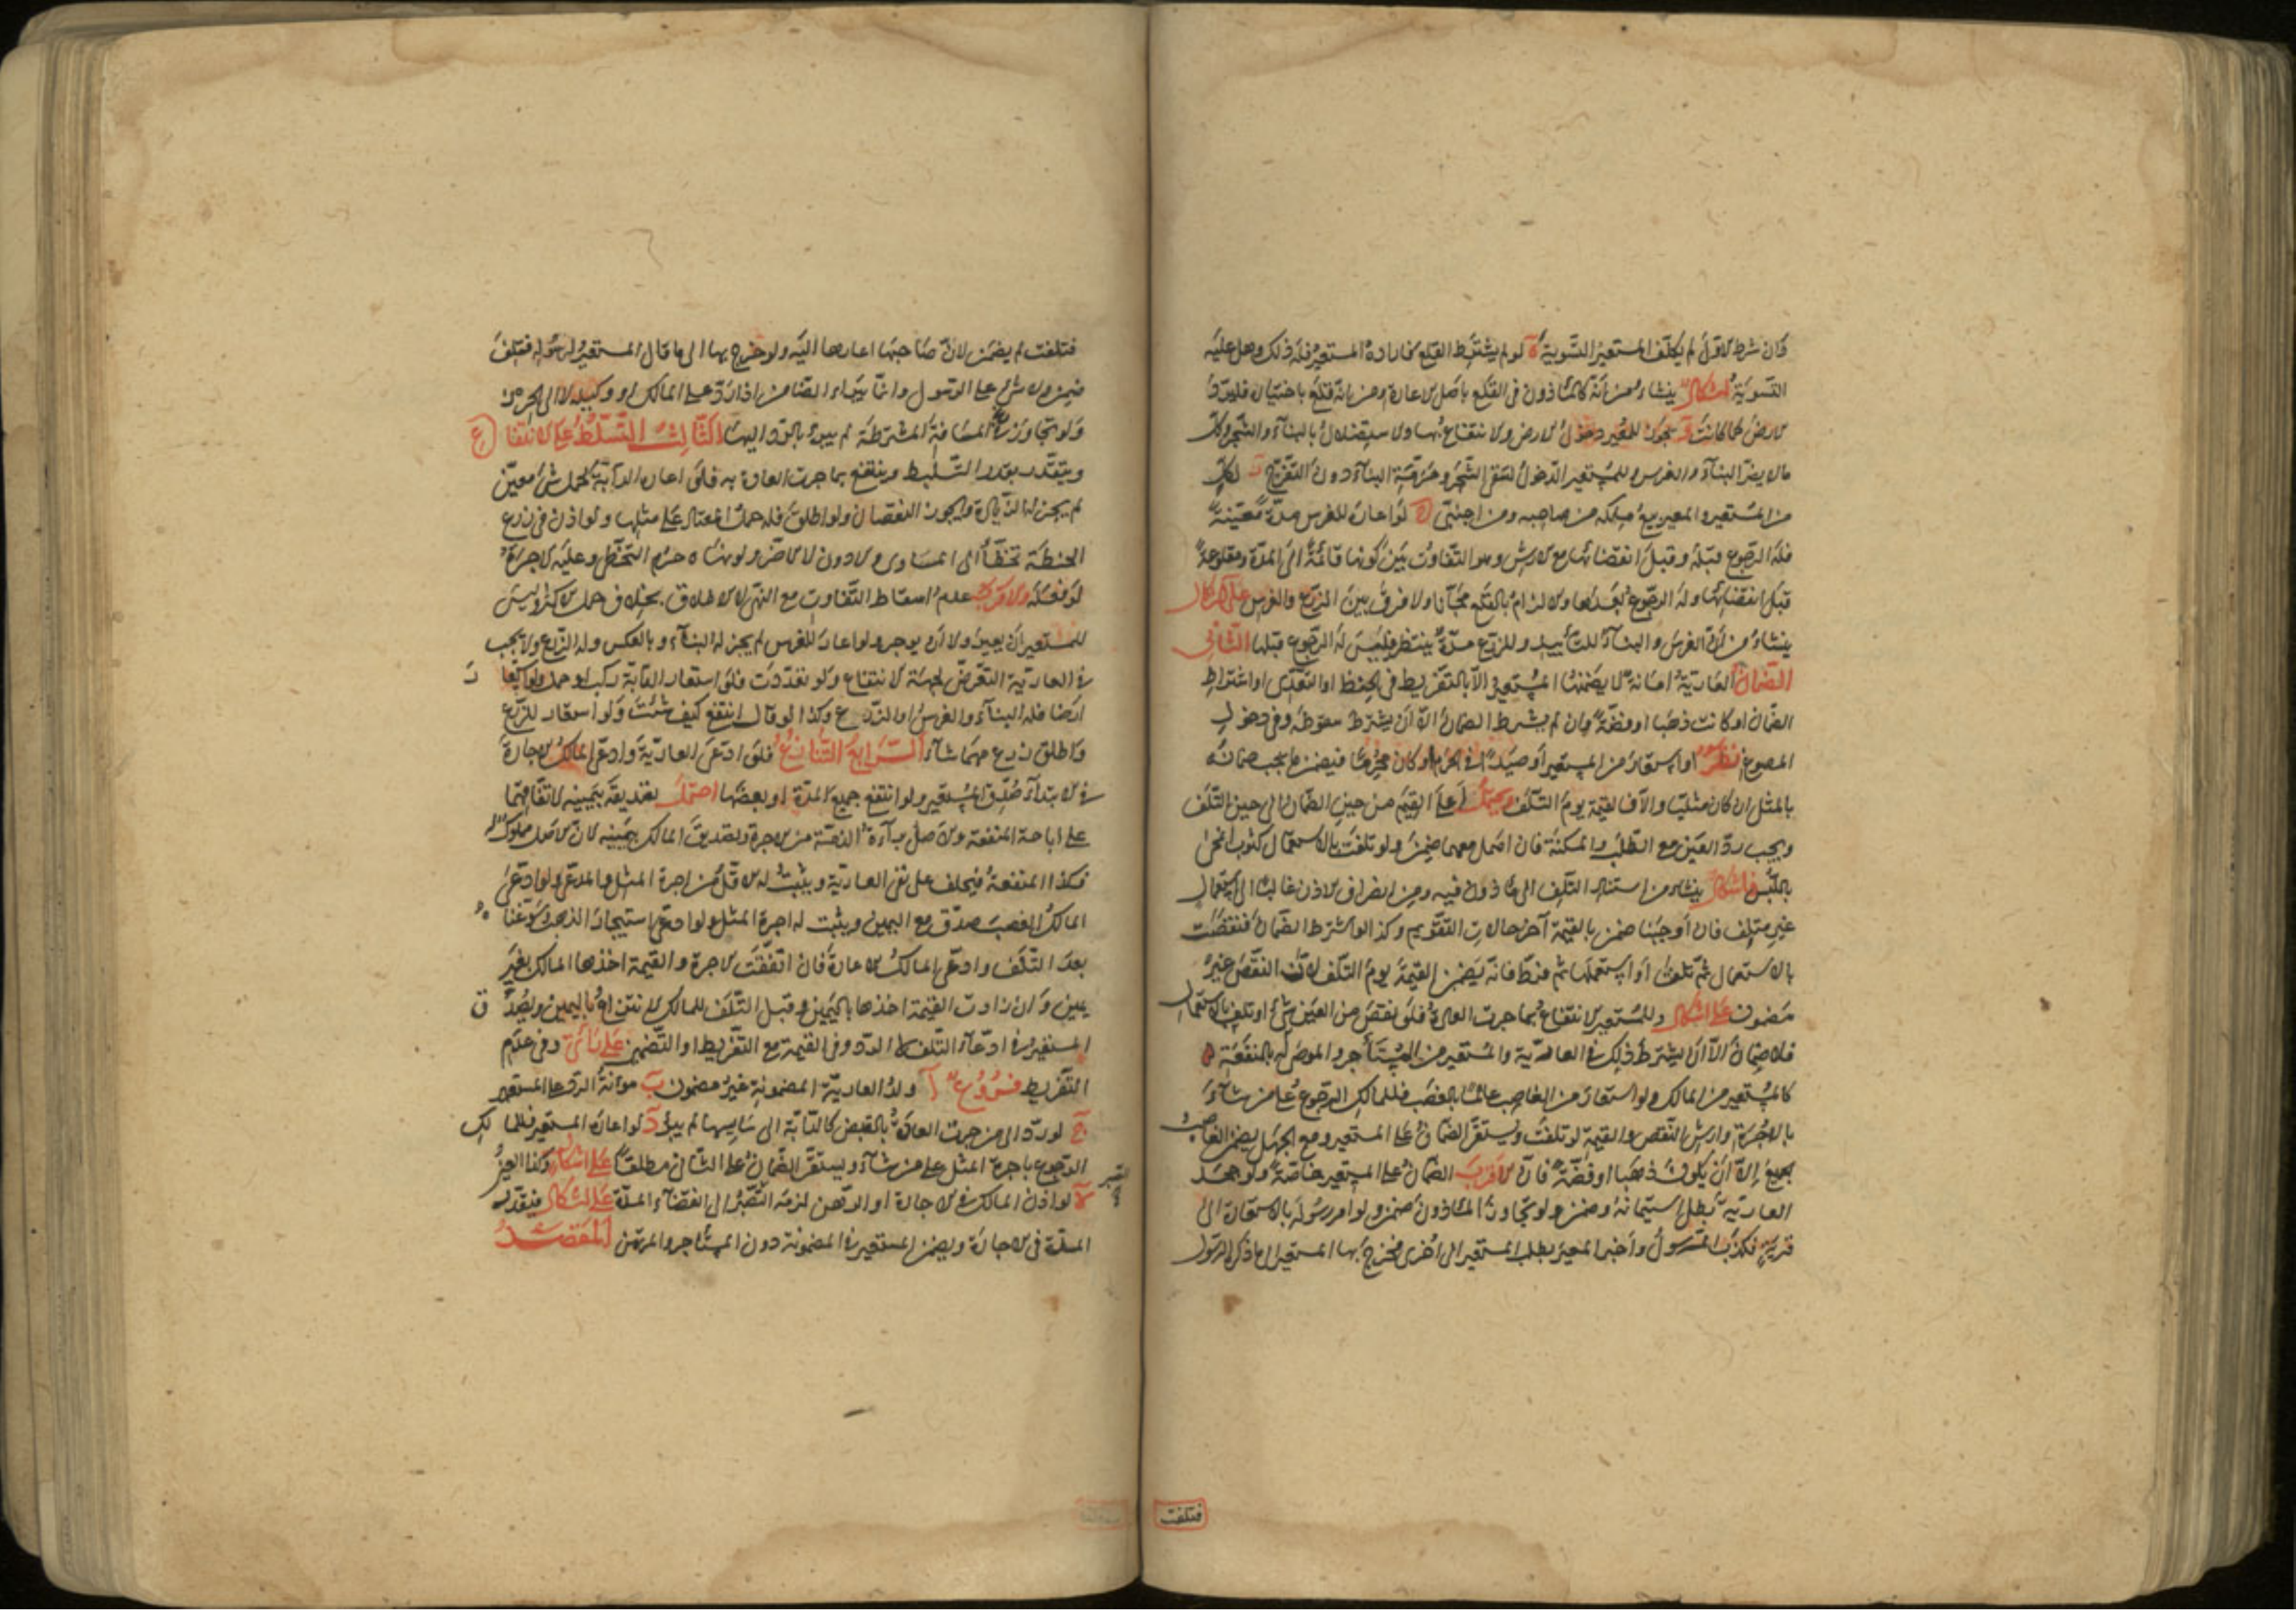 فان شرط الاول لم يكلف المستعير التسوية ة لو لم يشترط القلع فاراده المستعير فله ذلك وهل عليه
التسوية اشكال ينشاء من انه كالمأذون في القلع باصل الاعارة ومن انه قلع باختياره فليرد
الارض كما كانت و يجوز للمعير دخول الارض والانتفاع بها والاستظلال بالبناء والشجر وكل
ما لا يضر البناء والغرس وللمستعير الدخول لسقي الشجر ومرمة البناء دون التفرج ز لكل
من المستعير والمعير بيع ملكه من صاحبه ومن اجنبي ح لو اعاره للغرس مدة معينة
فله الرجوع قبله وقبل انقضائها مع الارش وهو التفاوت بين كونها قائمة الى المدة ومقلوعة
قبل انقضائها وله الرجوع بعدها والالزام بالقلع مجانا ولا فرق بين الزرع والغرس على اشكال
ينشاء من ان الغرس والبناء للتأبيد وللزرع مدة ينتظر فليس له الرجوع قبلها الثاني
الضمان العارية امانة لا يضمنها المستعير الا بالتفريط في الحفظ او التعدي او اشتراط
الضمان او كانت ذهبا او فضة وان لم يشترط الضمان الا ان يشترط سقوطه وفي دخول
المصوغ نظر او استعار من المستعير او صيدا في الحرم او كان محرما فيضمن ما يجب ضمانه
بالمثل ان كان مثليا والا فالقيمة يوم التلف ويحتمل اعلى القيم من حين الضمان الى حين التلف
ويجب رد العين مع الطلب والمكنة فان اهمل معهما ضمن ولو تلفت بالاستعمال كثوب انمحق
باللبس فاشكال ينشاء من استناد التلف الى مأذون فيه ومن انصراف الاذن غالبا الى استعمال
غير متلف فان اوجبنا ضمن بالقيمة آخر حالات التقويم وكذا لو اشترط الضمان فنقصت
بالاستعمال ثم تلفت او استعملها ثم فرط فانه يضمن القيمة يوم التلف لان النقص غير
مضمون على اشكال وللمستعير الانتفاع بما جرت العادة فلو نقص من العين شئ او تلف بالاستعمال
فلا ضمان الا ان يشترط ذلك في العارية والمستعير من المستأجر والموصى له بالمنفعة
كالمستعير من المالك ولو استعار من الغاصب عالما بالغصب فللمالك الرجوع على من شاء
بالاجرة وارش النقص والقيمة لو تلفت ويستقر الضمان على المستعير ومع الجهل يضمن الغاصب
الجميع الا ان يكون ذهبا او فضة فان الاقرب الضمان على المستعير خاصة ولو جحد
العارية بطل استيمانه وضمن ولو تجاوز المأذون ضمن ولو امر رسوله بالاستعارة الى
قرية فكذب الرسول واخبر المعير بطلب المستعير الى اخرى فخرج بها المستعير الى ما ذكره الرسول
فتلفت
فتلفت لم يضمن لان صاحبها اعارها اليه ولو خرج بها الى ما قال المستعير لرسوله فتلفت
ضمن ولا شئ على الرسول وانما يبراء الضامن اذا رد على المالك او وكيله لا الى الحرز
ولو تجاوز المسافة المشترطة لم يبرء بالرد اليها الثالث التسلط على الانتفاع
ويتقدر بقدر التسليط وينتفع بما جرت العادة به فلو اعاره الدابة لحمل شئ معين
لم يجز له الزيادة ويجوز النقصان ولو اطلق فله حمل المعتاد على مثلها ولو اذن في زرع
الحنطة تخطأ الى المساوى والادون لا الاضر ولو نهاه حرم التخطى وعليه الاجرة
لو فعله والاقرب عدم اسقاط التفاوت مع النهى لا الاطلاق بخلاف حمل الاكثر وليس
للمستعير ان يعير ولا ان يوجر ولو اعاره للغرس لم يجز له البناء وبالعكس وله الزرع ولا يجب
في العارية التعرض لجهة الانتفاع ولو تعددت فلو استعار الدابة ركب او حمل ولو استعار
ارضا فله البناء والغرس او الزرع وكذا لو قال انتفع كيف شئت ولو استعار للزرع
واطلق زرع مهما شاء الرابع التنازع فلو ادعى العارية وادعى المالك الاجارة
في الابتداء صدق المستعير ولو انتفع جميع المدة او بعضها احتمل تصديقه بيمينه لاتفاقهما
على اباحة المنفعة والاصل براءة الذمة من الاجرة وتصديق المالك بيمينه لان الاصل مملوك له
فكذا المنفعة فيحلف على نفى العارية ويثبت له الاقل من اجرة المثل والمدعى ولو ادعى
المالك الغصب صدق مع اليمين ويثبت له اجرة المثل ولو ادعى استيجار الذهب وسوغناه
بعد التلف وادعى المالك الاعارة فان اتفقت الاجرة والقيمة اخذها المالك بغير
يمين وان زادت القيمة اخذها باليمين وقبل التلف للمالك الانتزاع باليمين ويصدق
المستعير في ادعاء التلف لا الرد وفي القيمة مع التفريط او التضمين على رأي وفي عدم
التفريط فروع آ ولد العارية المضمونة غير مضمون ب مؤنة الرد على المستعير
ج لو رد الى من جرت العادة بالقبض كالدابة الى سايسها لم يبرء د لو اعار المستعير فللمالك
الرجوع باجرة المثل على من شاء ويستقر الضمان على الثاني مطلقا على اشكال وكذا العين
ة لو اذن المالك في الاجارة او الرهن لزمه الصبر الى انقضاء المدة على اشكال فيقدر
المدة في الاجارة ويضمن المستعير في المضمونة دون المستأجر والمرتهن المقصد